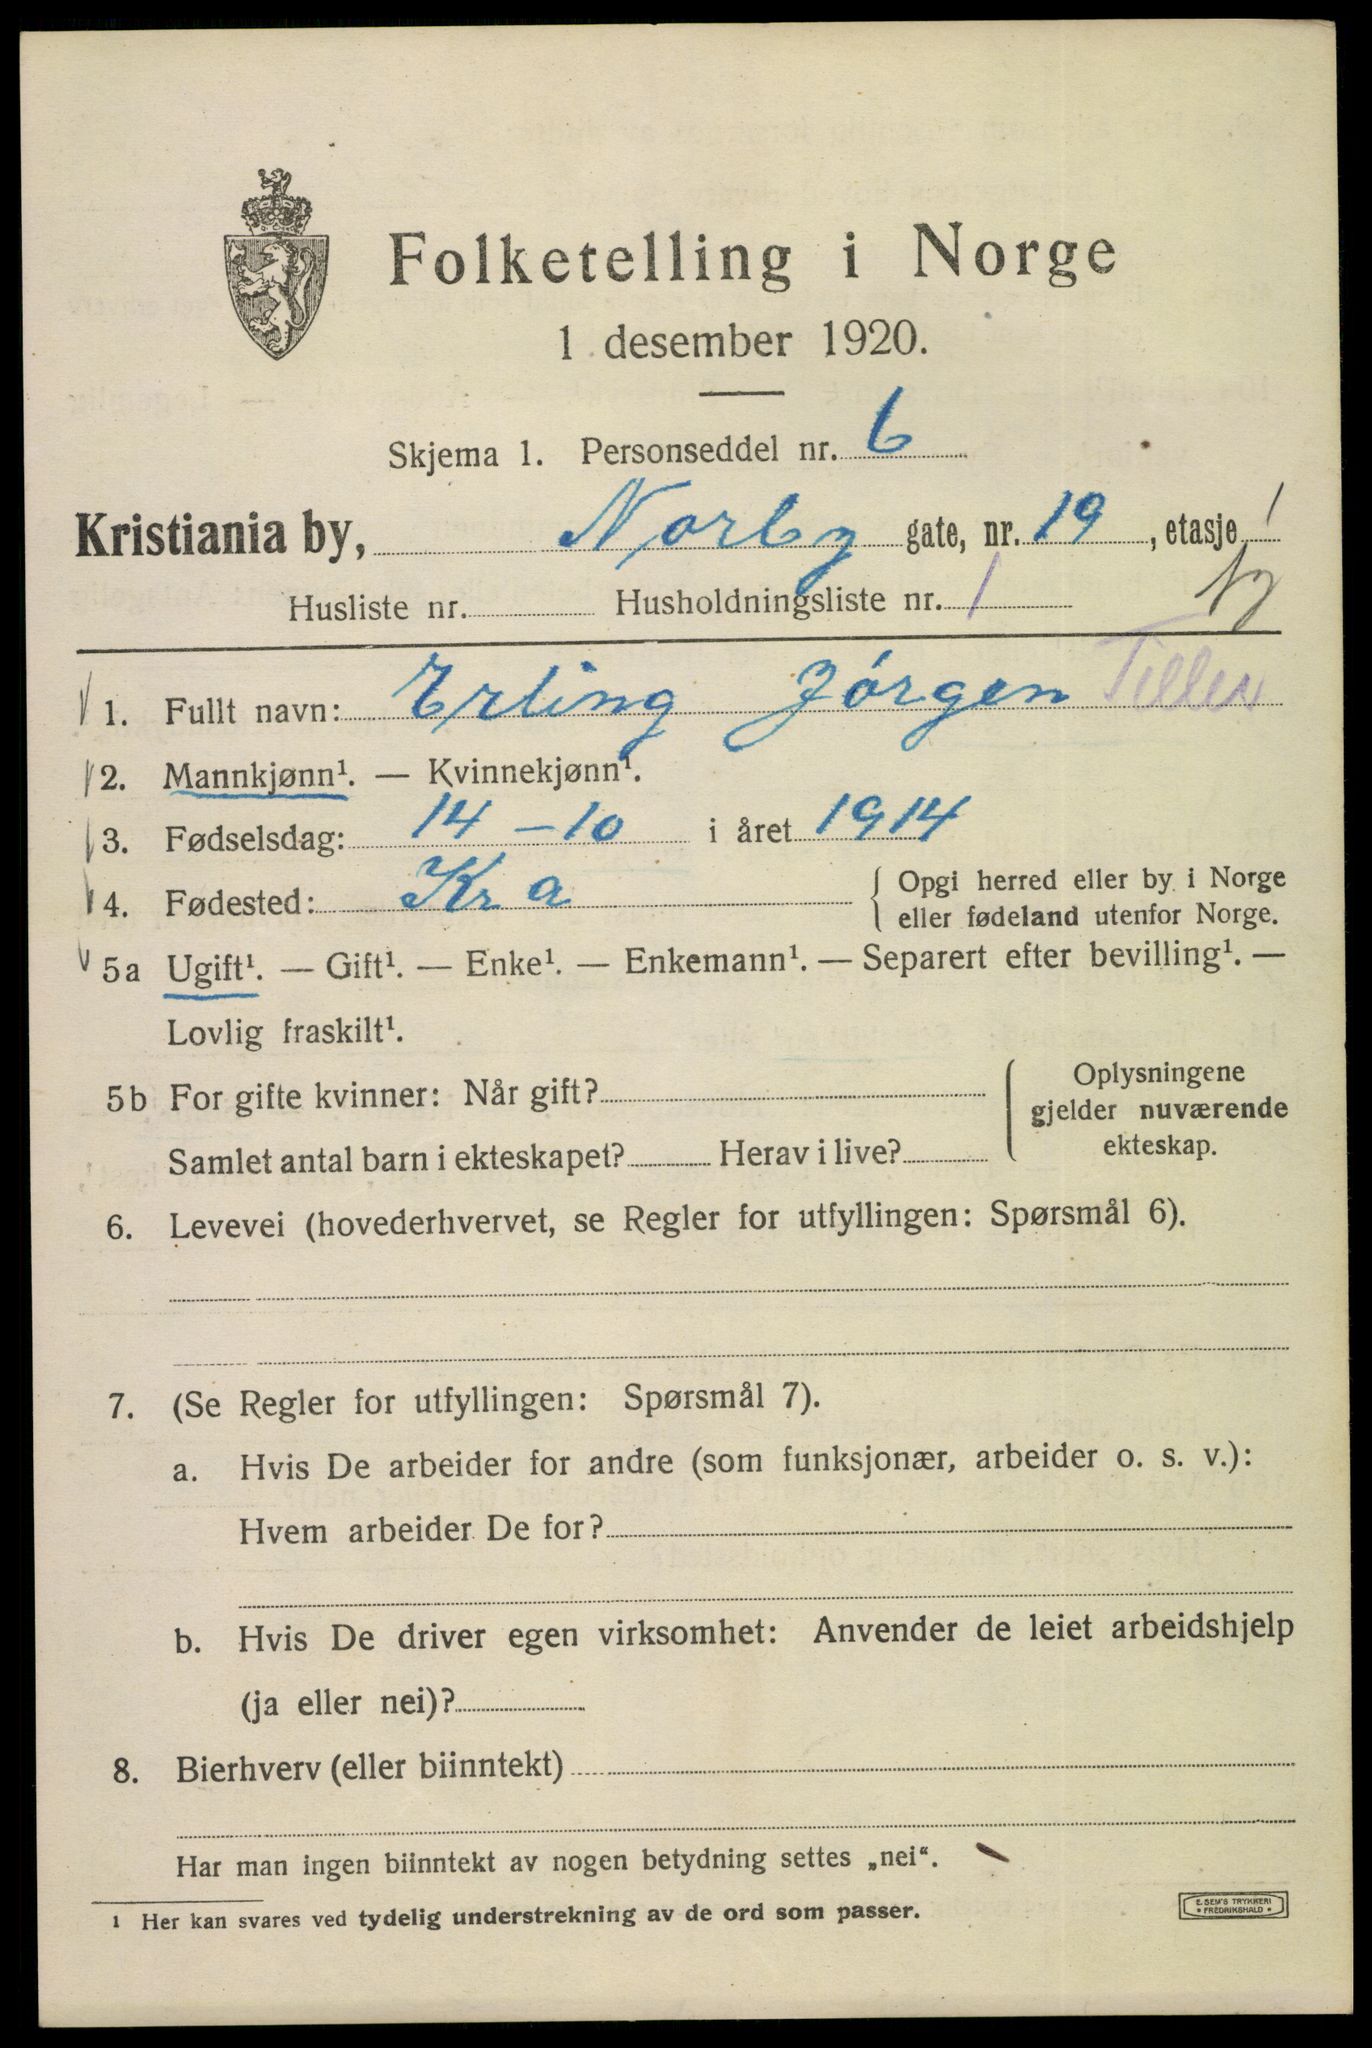 Folketelling i Norge
1 desember 1920.
Skjema 1. Personseddel nr. 6
Kristiania by, Norby gate, nr. 19, etasje 1
Husliste nr. Husholdningsliste nr. 1
1. Fullt navn: Erling Jórgen Tiller
2. Mannkjønn¹. — Kvinnekjønn¹.
3. Fødselsdag: 14-10 i året 1914
4. Fødested: Kr a { Opgi herred eller by i Norge
eller fødeland utenfor Norge.
5a Ugift¹. — Gift¹. — Enke¹. — Enkemann¹. — Separert efter bevilling¹. —
Lovlig fraskilt¹.
5b For gifte kvinner: Når gift?
Samlet antal barn i ekteskapet? Herav i live?
Oplysningene
gjelder nuværende
ekteskap.
6. Levevei (hovederhvervet, se Regler for utfyllingen: Spørsmål 6).
7. (Se Regler for utfyllingen: Spørsmål 7).
a. Hvis De arbeider for andre (som funksjonær, arbeider o. s. v.):
Hvem arbeider De for?
b. Hvis De driver egen virksomhet: Anvender de leiet arbeidshjelp
(ja eller nei)?
8. Bierhverv (eller biinntekt)
Har man ingen biinntekt av nogen betydning settes „nei“.
1 Her kan svares ved tydelig understrekning av de ord som passer.
E. SEM'S TRYKKERI
* FREDRIKSHALD *